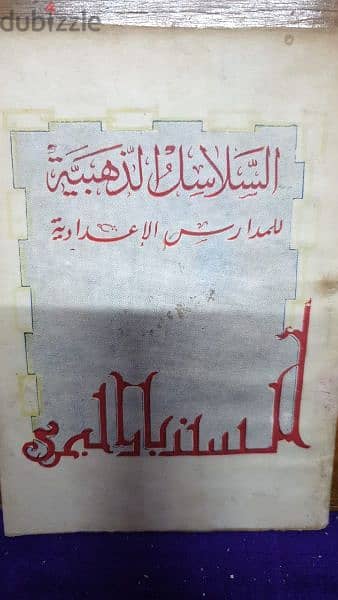 dubizzle
السَّلاسِلُ الذَّهَبيَّة
للمدارس الإعدادية
السندباد البحري